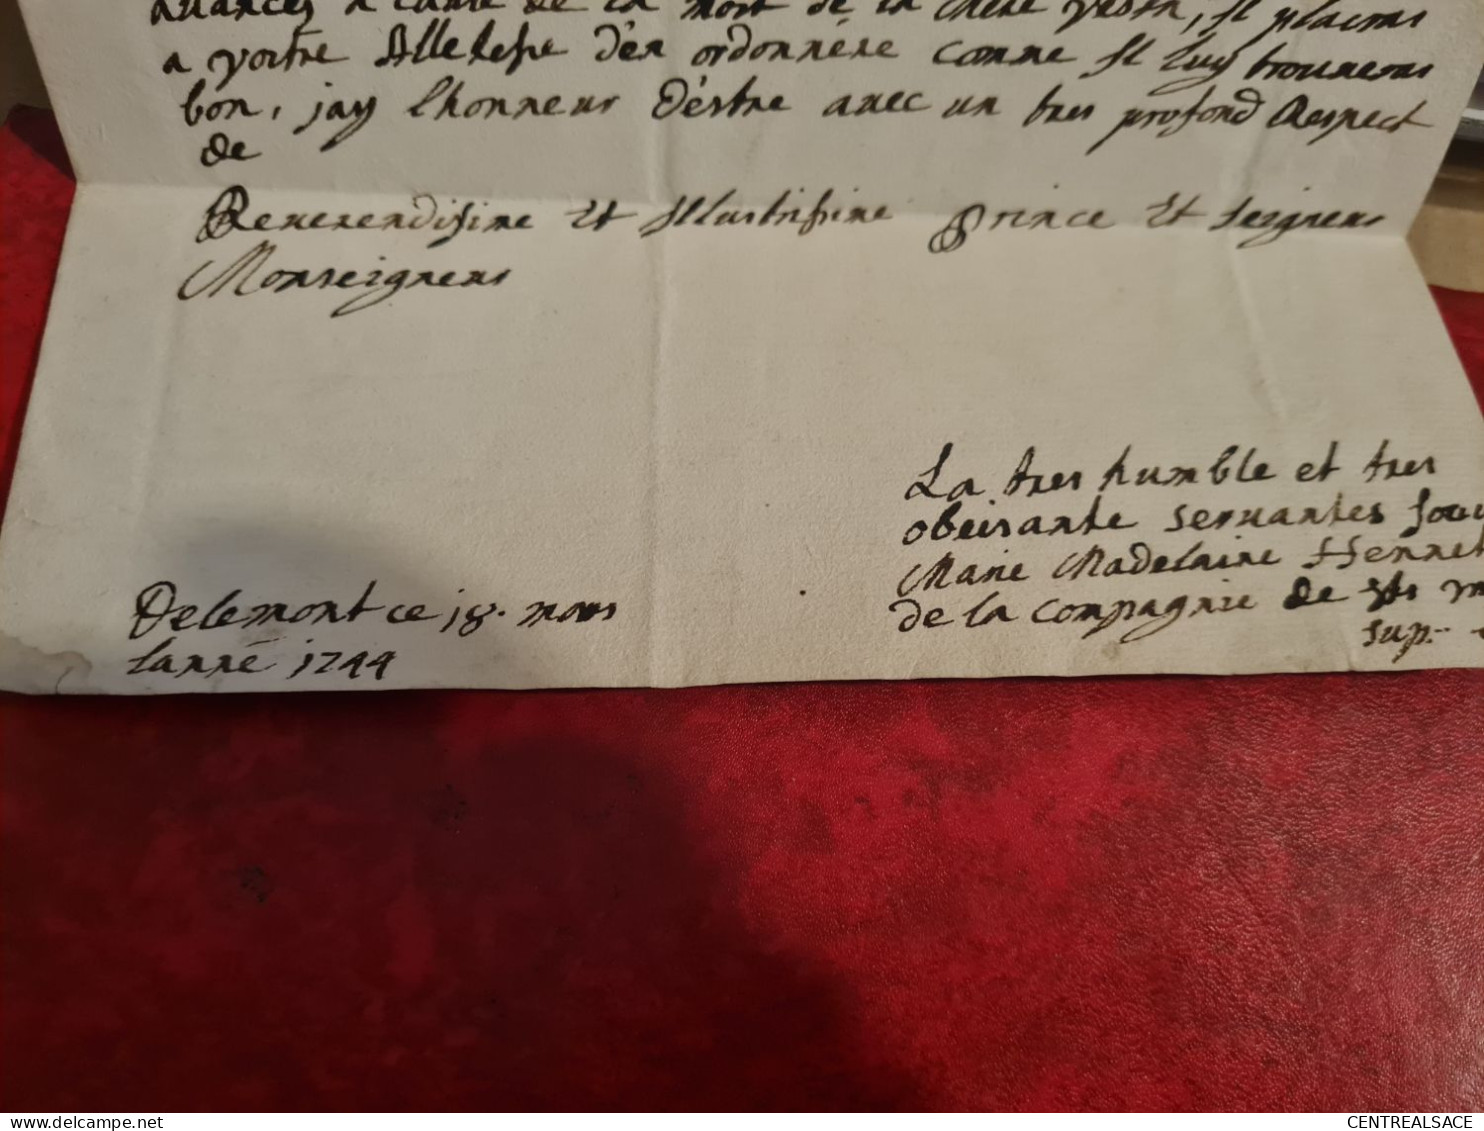 auances a cause de la mort de la chere vestu, Il plairas
a vostre Allelesse d'en ordonnére comme Il luy trouueras
bon, jay l'honneur d'éstre auec un tres profond Respect
de
Reuerendisime Et Illustrissime Prince Et seigneur
Monseigneur
La tres humble et tres
obeisante seruantes soeu
Marie Madelaine Henriet
de la compagnie de sts
sup.
Delemont ce 18. mars
lanné 1744
delcampe.net
CENTREALSACE